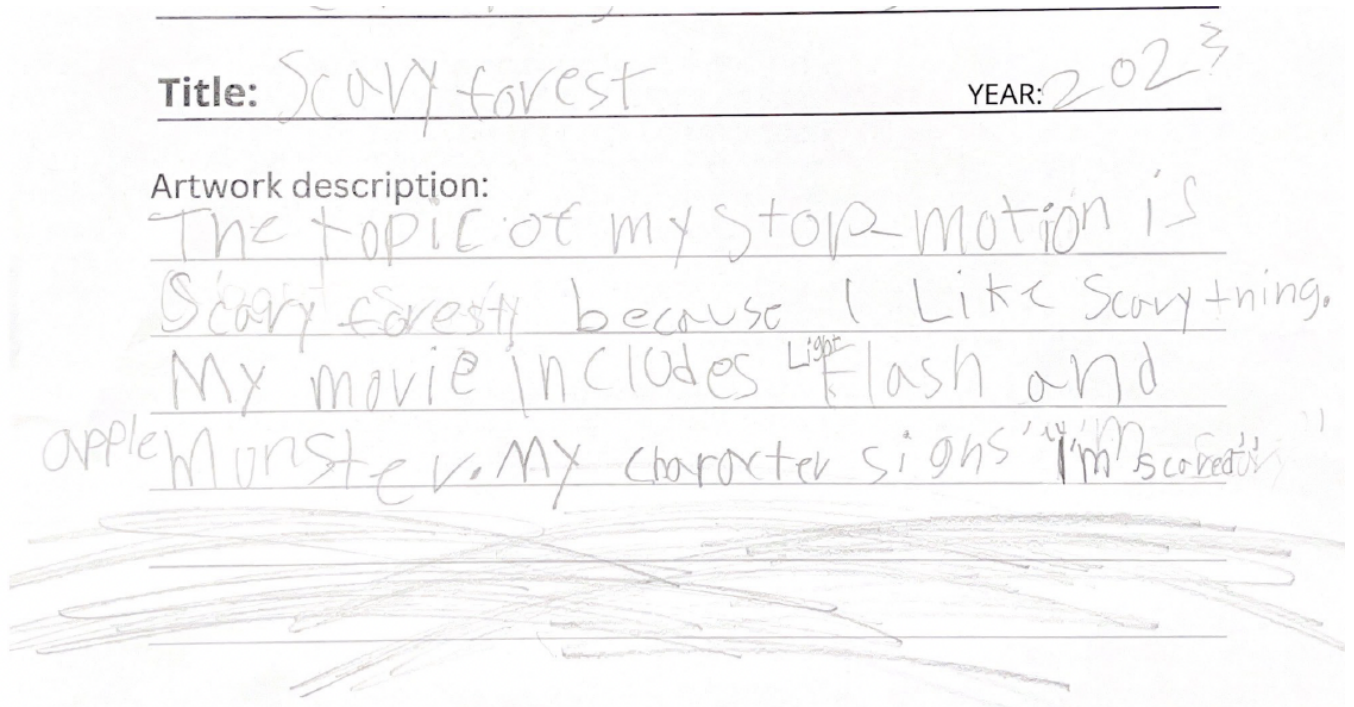 Title: Scary forest YEAR: 2023
Artwork description:
The topic of my stop-motion is
Scary forest because I Like Scary thing.
My movie includes Light Flash and
apple Monster. My character signs "I'm scared"